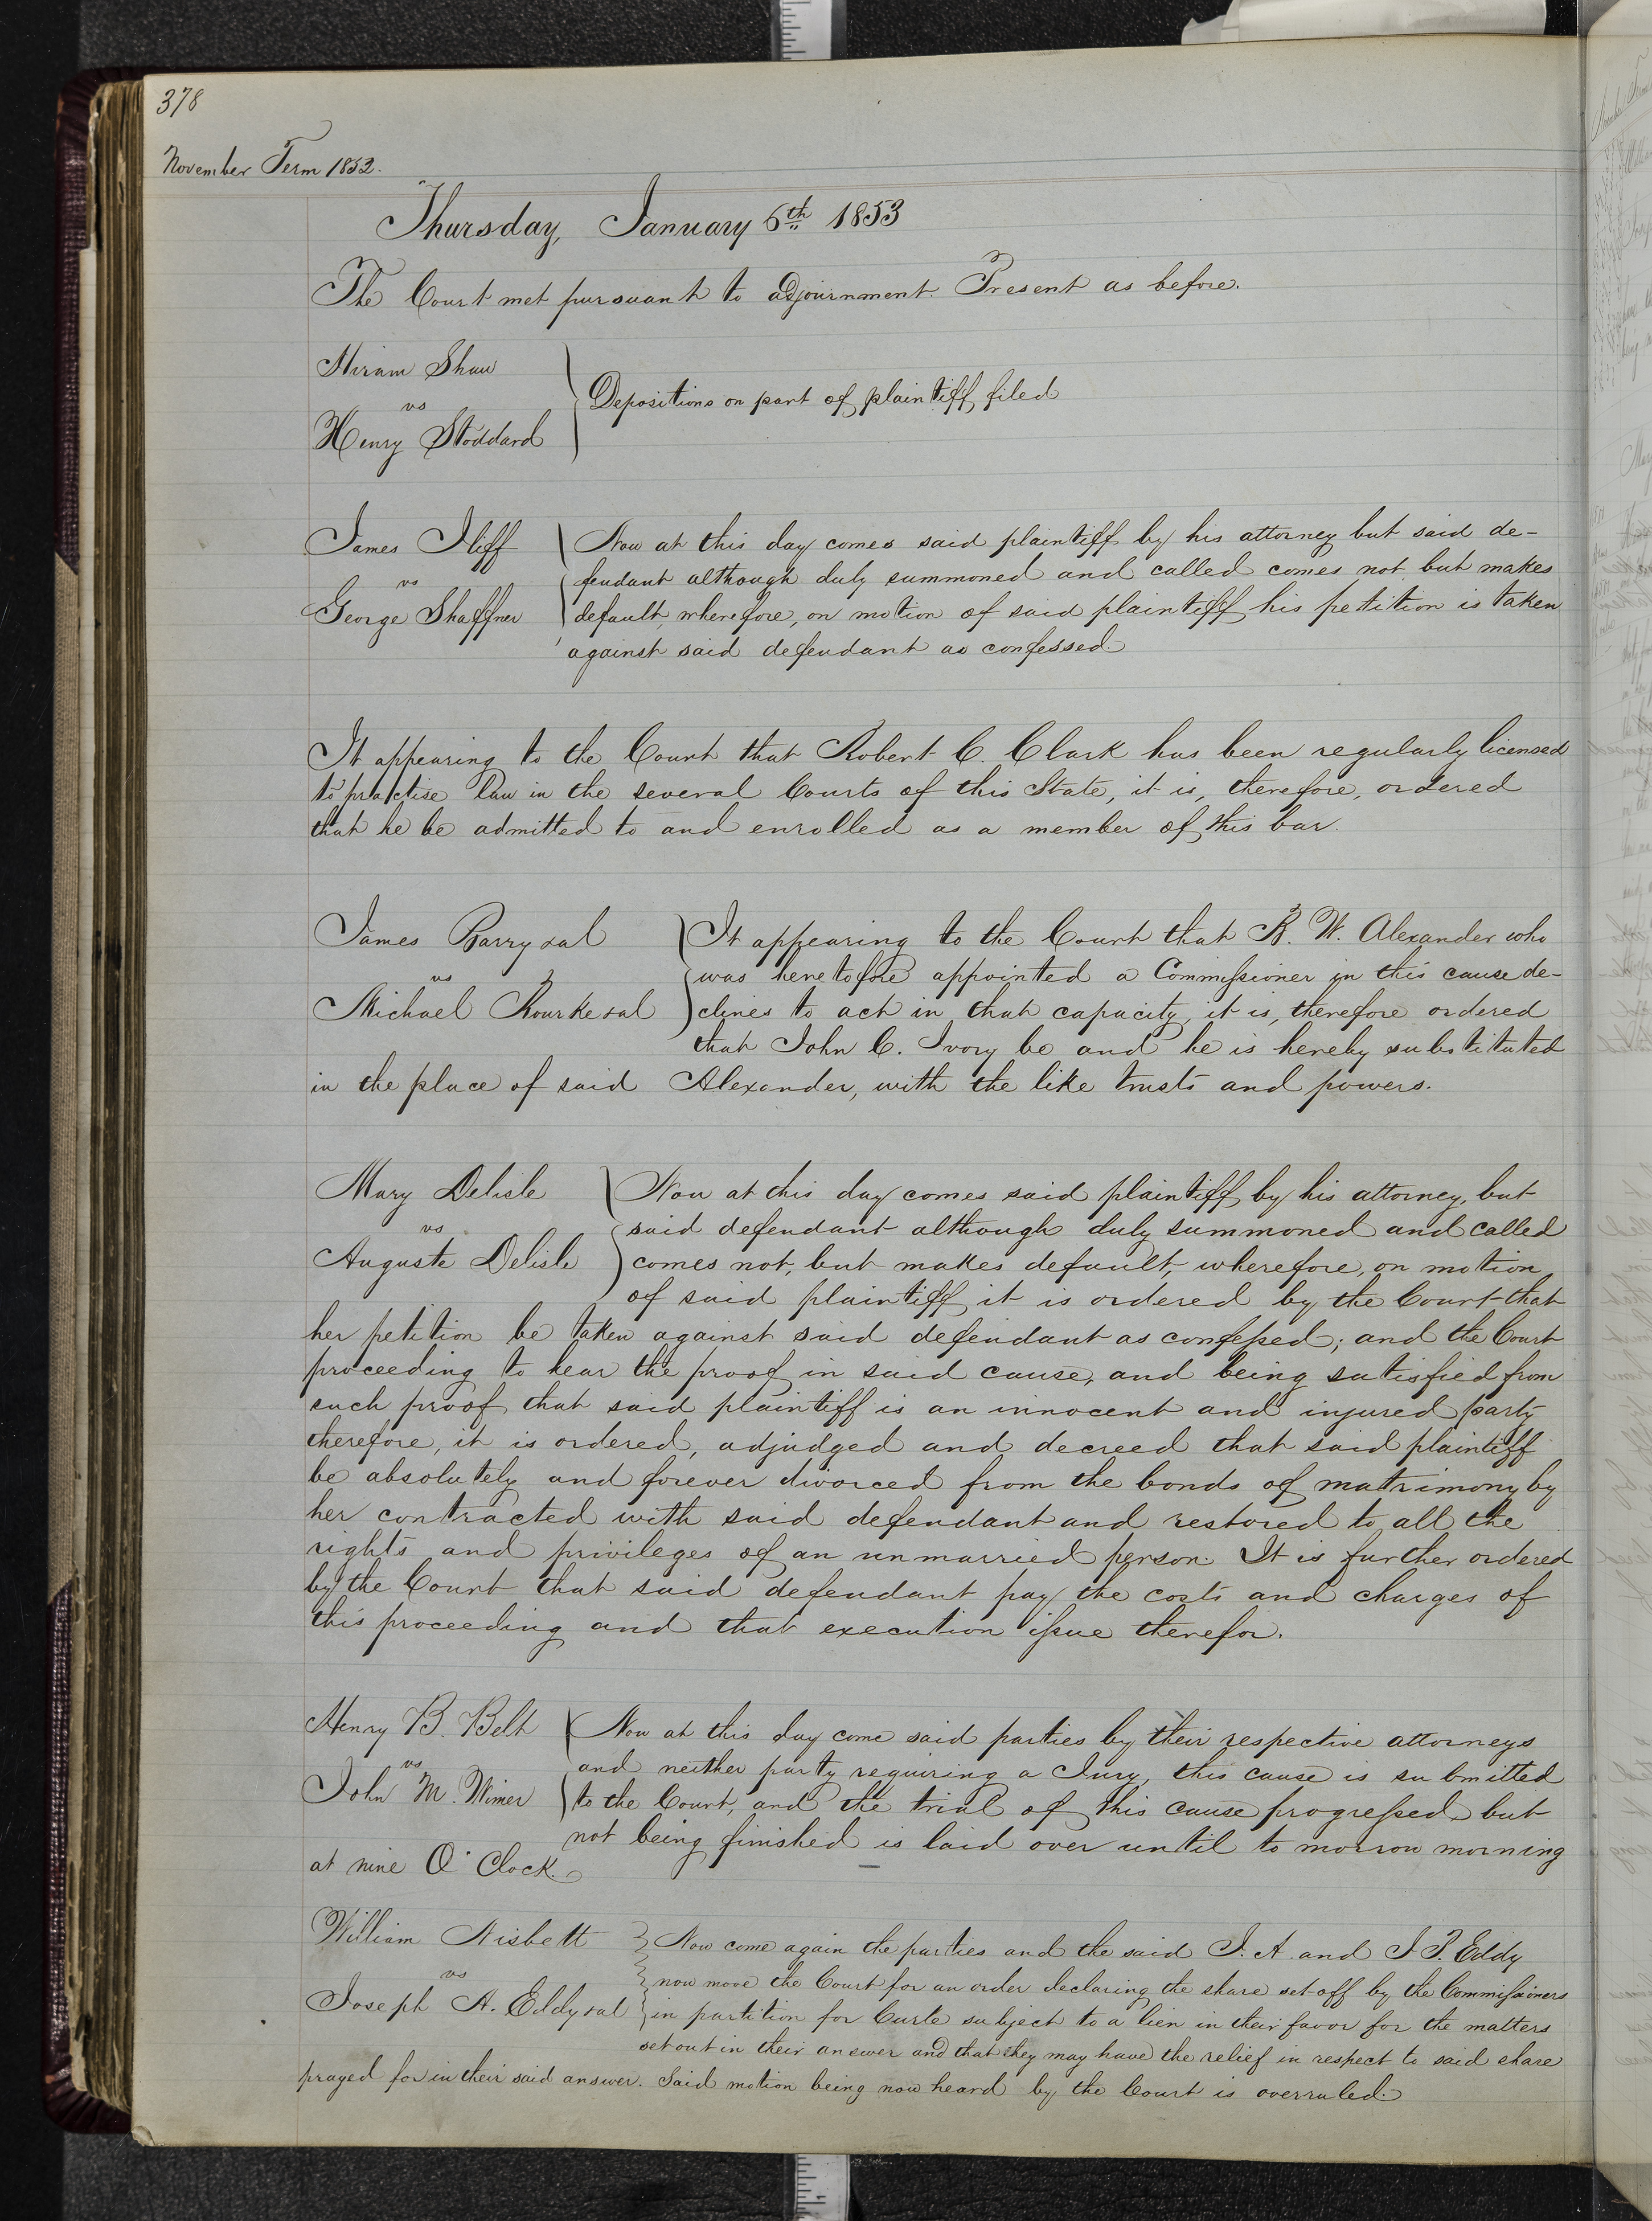 378
November Term 1852.
Thursday, January 6th 1853
The Court met pursuant to adjournment. Present as before.
Hiram Shaw
vs
Henry Stoddard
Depositions on part of plaintiff filed
James Iliff
vs
George Shaffner
Now at this day comes said plaintiff by his attorney but said de-
fendant although duly summoned and called comes not but makes
default, wherefore, on motion of said plaintiff his petition is taken
against said defendant as confessed.
It appearing to the Court that Robert C. Clark has been regularly licensed
to practise law in the several Courts of this State, it is, therefore, ordered
that he be admitted to and enrolled as a member of this bar.
James Barry & al
vs
Michael Rourke & al
It appearing to the Court that R. W. Alexander who
was heretofore appointed a Commissioner in this cause de-
clines to act in that capacity, it is, therefore ordered
that John C. Ivory be and he is hereby substituted
in the place of said Alexander, with the like trusts and powers.
Mary Delisle
vs
Auguste Delisle
Now at this day comes said plaintiff by his attorney, but
said defendant although duly summoned and called
comes not, but makes default, wherefore, on motion
of said plaintiff it is ordered by the Court that
her petition be taken against said defendant as confessed; and the Court
proceeding to hear the proof in said cause, and being satisfied from
such proof that said plaintiff is an innocent and injured party
therefore, it is ordered, adjudged and decreed that said plaintiff
be absolutely and forever divorced from the bonds of matrimony by
her contracted with said defendant and restored to all the
rights and privileges of an unmarried person. It is further ordered
by the Court that said defendant pay the costs and charges of
this proceeding and that execution issue therefor.
Henry B. Belt
vs
John M. Wimer
Now at this day come said parties by their respective attorneys
and neither party requiring a Jury, this cause is submitted
to the Court, and the trial of this cause progressed but
not being finished is laid over until to morrow morning
at nine O'Clock.
William Nisbett
vs
Joseph A. Eddy & al
Now come again the parties and the said J. A. and J. P. Eddy
now move the Court for an order declaring the share set off by the Commissioners
in partition for Curle subject to a lien in their favor for the matters
set out in their answer and that they may have the relief in respect to said share
prayed for in their said answer. Said motion being now heard by the Court is overruled.